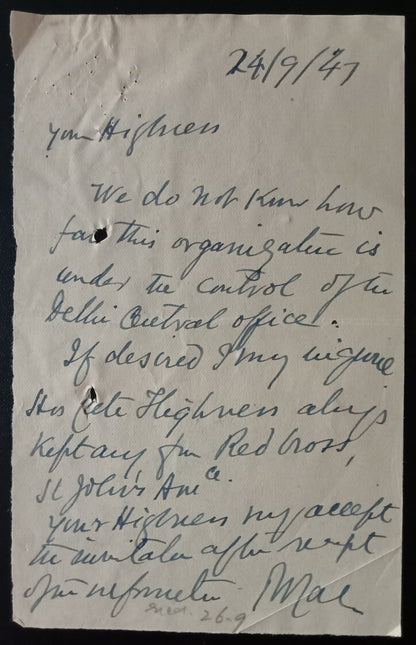 24/9/47
your Highness
We do not know how
far this organisation is
under the control of the
Delhi Central office.
If desired I may inquire
His late Highness always
kept away from Red Cross,
St John's Amce.
your Highness may accept
the invitation after receipt
of the information.
26-9